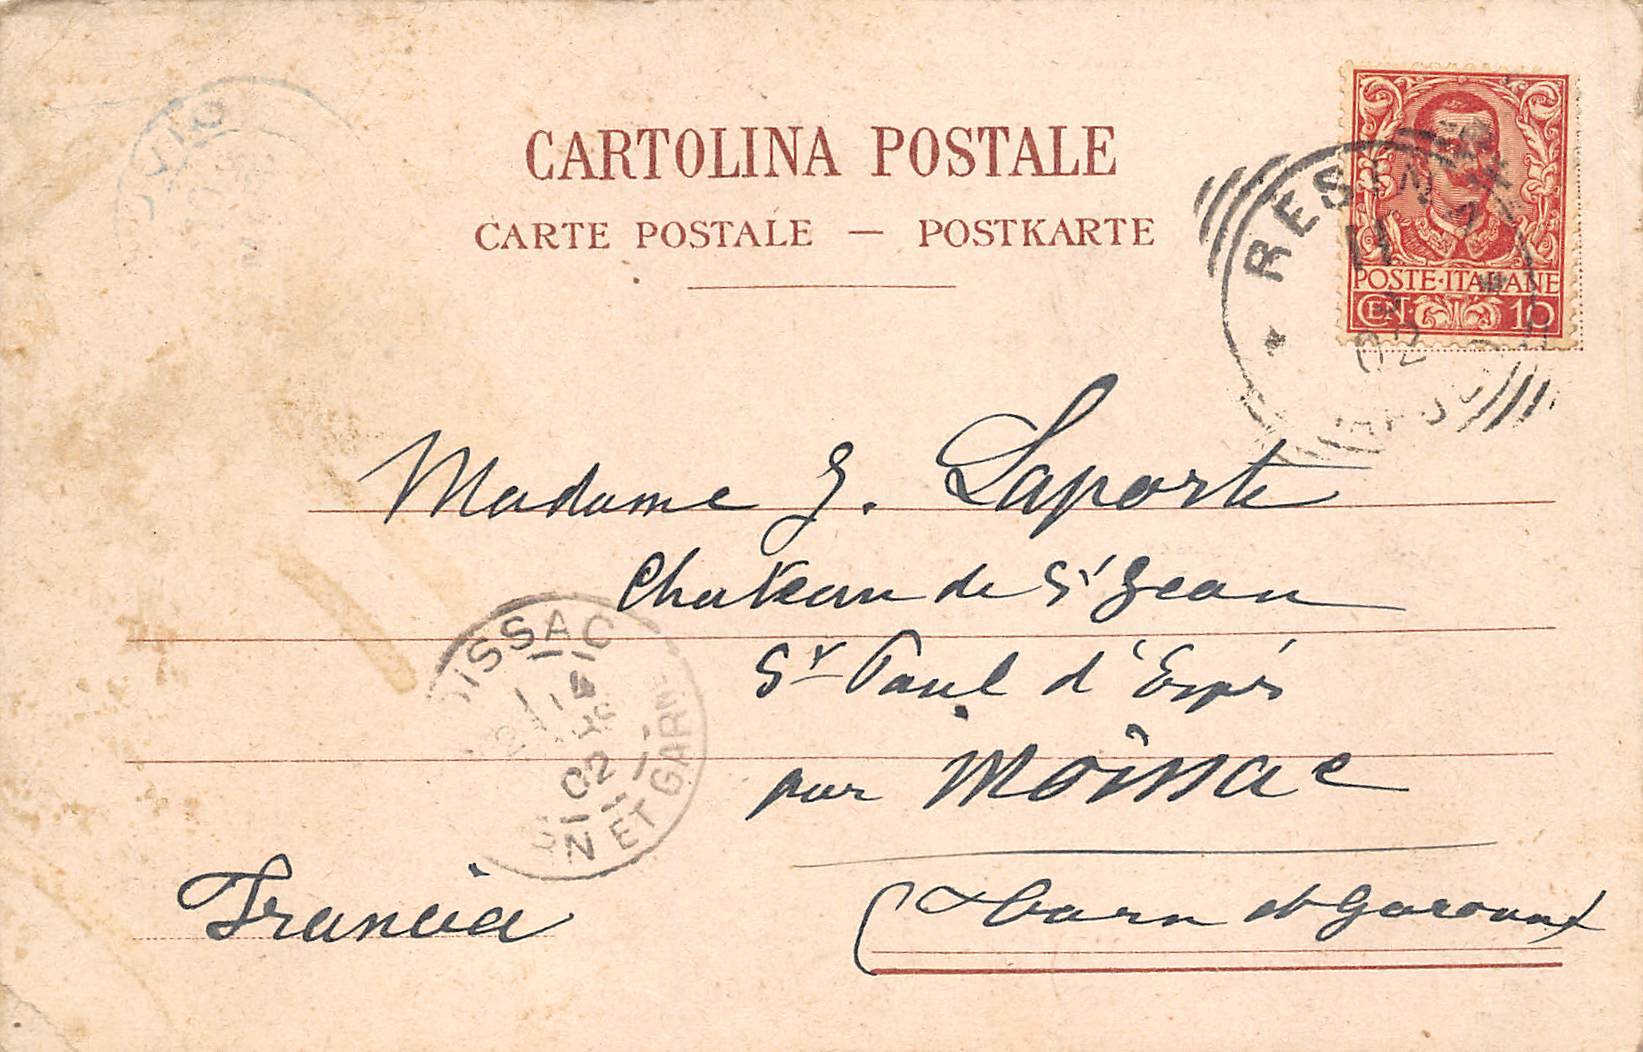 CARTOLINA POSTALE
CARTE POSTALE — POSTKARTE
RESINA
11
02
POSTE·ITALIANE
CEN. 10
Madame G. Laporte
Chateau de St Jean
St Paul d'Espis
par Moissac
(Tarn et Garonne)
Francia
OISSAC
14
02
N ET GARNE